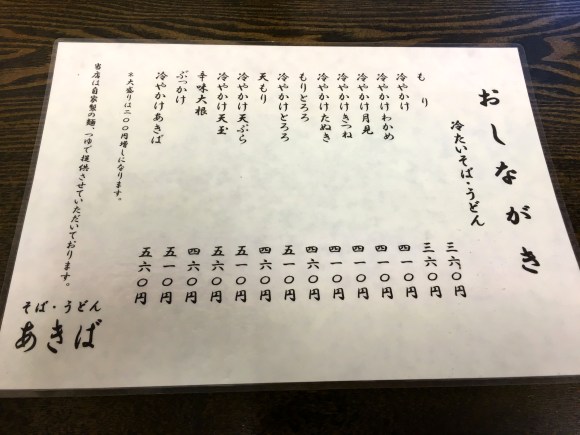 おしながき
冷たいそば・うどん
もり 三六〇円
冷やかけ 三六〇円
冷やかけわかめ 四一〇円
冷やかけ月見 四一〇円
冷やかけきつね 四一〇円
冷やかけたぬき 四一〇円
もりとろろ 四六〇円
冷やかけとろろ 五一〇円
天もり 四六〇円
冷やかけ天ぷら 五一〇円
冷やかけ天玉 五六〇円
辛味大根 四六〇円
ぶっかけ 五一〇円
冷やかけあきば 五六〇円
※大盛りは二〇〇円増しになります。
当店は自家製の麺、つゆで提供させていただいております。
そば・うどん
あきば